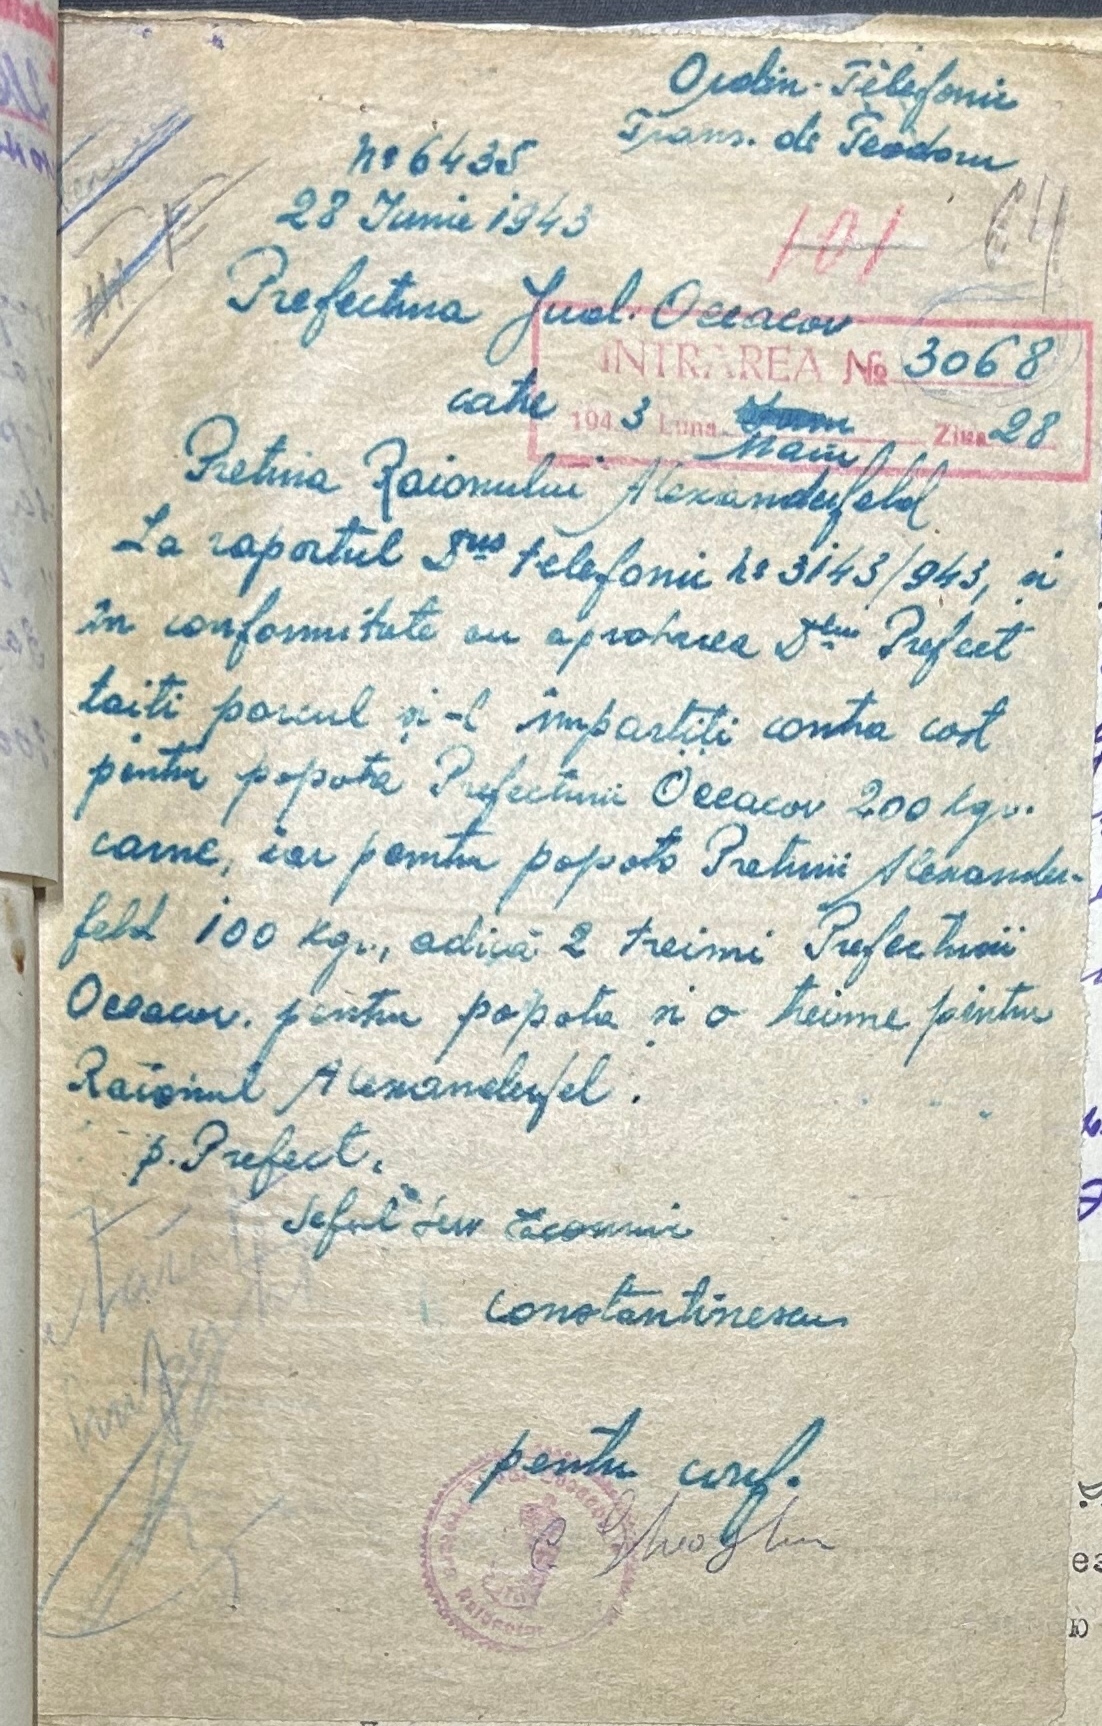 Ordin-Telefonic
Trans. de Teodoru
No 6435
28 Iunie 1943
101 64
Prefectura Jud. Oceacov
INTRAREA No 3068
catre
194 3 Luna Ziua 28
Pretura Raionului Alexanderfeld
La raportul Dvs telefonic No 3143/943, si
în conformitate cu aprobarea Dlui Prefect
taiti porcul si-l împartiți contra cost
pentru popota Prefecturii Oceacov 200 kgr.
carne, iar pentru popota Preturii Alexander-
feld 100 kgr., adică 2 treimi Prefecturii
Oceacov. pentru popota si o treime pentru
Raionul Alexanderfel.
p. Prefect,
Seful Serv Economic
Constantinescu
pentru conf.
C Gheorghiu